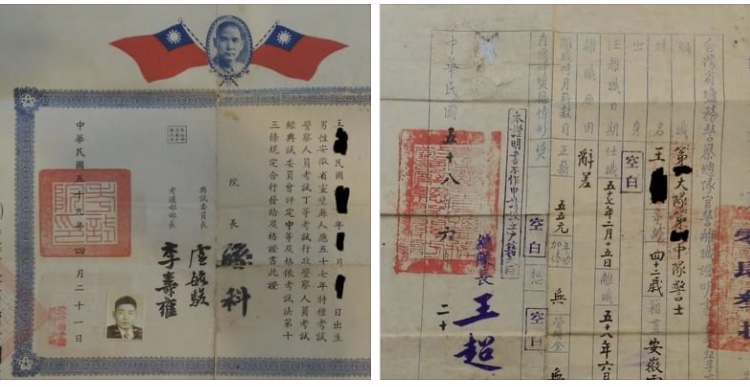 王 民國 年 月 日出生
男性安徽省靈璧縣人應五十七年特種考試
警察人員考試丁等考試行政警察人員考試
經典試委員會評定中等及格依考試法第十
三條規定合行發給及格證書此證
院長 孫科
典試委員長 盧毓駿
考選部部長 李壽雍
中華民國五十九年四月二十一日
台灣省 警察總隊官警離職證明
職 第 大隊第 中隊警士
姓名 王 四十二歲 籍貫 安徽
出身 空白
任離職日期 任職 五十七年二月十五日 離職 五十八年六月
離職原因 辭差
離職時月支數目 正薪 五五元 無
獎懲情形 獎 空白 懲 空白
本證明書不作申
總隊長 王超
中華民國 五十八 六 二十